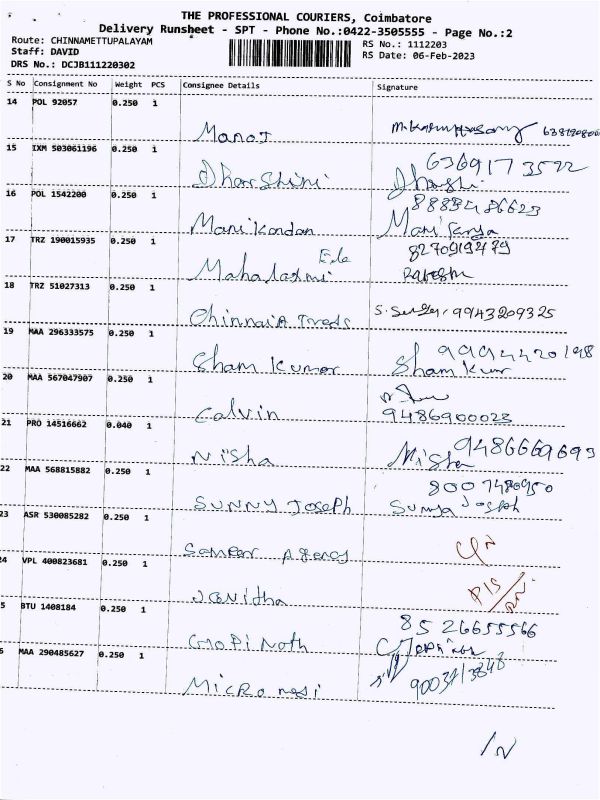 THE PROFESSIONAL COURIERS, Coimbatore
Delivery Runsheet - SPT - Phone No.:0422-3505555 - Page No.:2
Route: CHINNAMETTUPALAYAM
Staff: DAVID
DRS No.: DCJB111220302
RS No.: 1112203
RS Date: 06-Feb-2023
S No Consignment No Weight PCS Consignee Details Signature
14 POL 92057 0.250 1
Manoj
15 IXM 503061196 0.250 1
6369173522
Dharshini
16 POL 1542200 0.250 1
8883486623
Manikandan
17 TRZ 190015935 0.250 1
8270919479
Mahalaxmi
18 TRZ 51027313 0.250 1
Chinnaia Treds 9943209325
19 MAA 296333575 0.250 1
9994420198
Sham Kumar Sham Kumr
20 MAA 567047907 0.250 1
Calvin 9486900023
21 PRO 14516662 0.040 1
9486669693
Nisha Nisha
22 MAA 568815882 0.250 1
8007480950
SUNNY JOSEPH Sunny Joseph
23 ASR 530085282 0.250 1
Agency
24 VPL 400823681 0.250 1
Janitha
5 BTU 1408184 0.250 1
8526655566
Gopinath
6 MAA 290485627 0.250 1
Micro